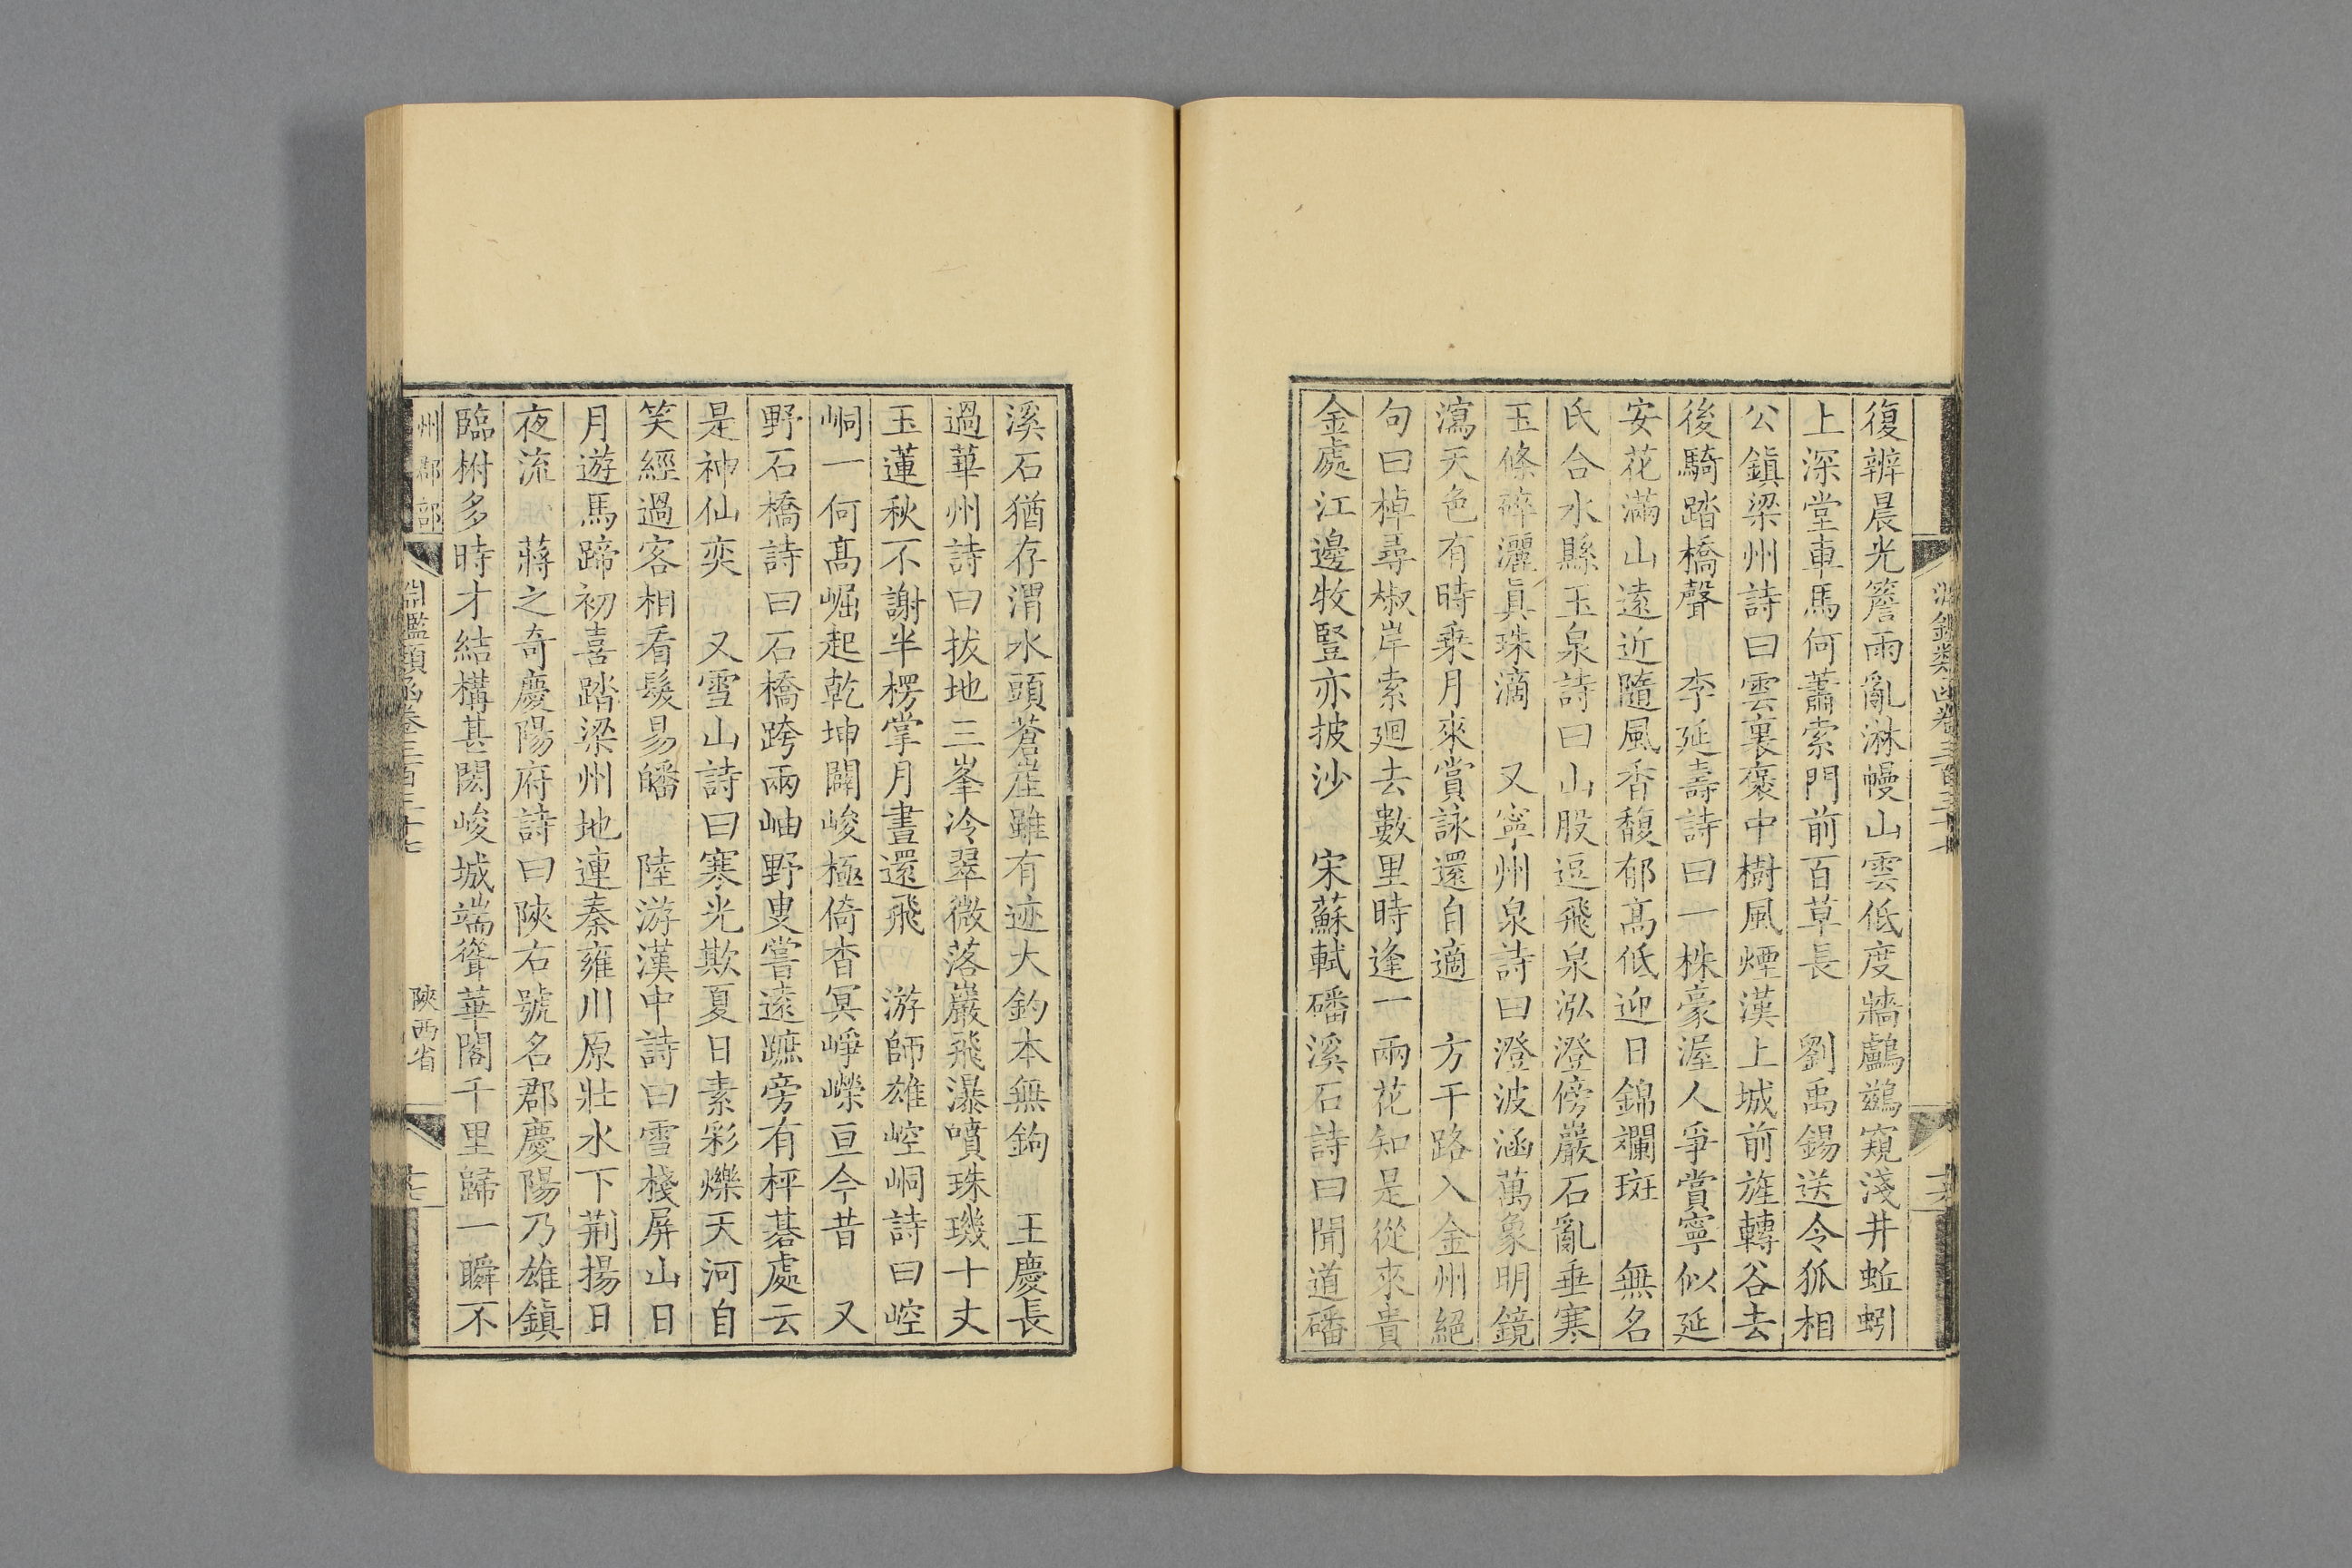 復辨晨光簷雨亂淋幔山雲低度牆鸕鷀窺淺井蚯蚓
上深堂車馬何蕭索門前百草長 劉禹錫送令狐相
公鎮梁州詩曰雲裏褒中樹風煙漢上城前旌轉谷去
後騎踏橋聲 李延壽詩曰一株豪渥人爭賞寧似延
安花滿山遠近隨風香馥郁高低迎日錦斕斑 無名
氏合水縣玉泉詩曰山股逗飛泉泓澄傍巖石亂垂寒
玉條碎灑真珠滴 又寧州泉詩曰澄波涵萬象明鏡
瀉天色有時乗月來賞詠還自適 方干路入金州絕
句曰棹尋椒岸索廻去數里時逢一兩花知是從來貴
金處江邊牧豎亦披沙 宋蘇軾磻溪石詩曰聞道磻
溪石猶存渭水頭蒼崖雖有迹大釣本無鉤 王慶長
過華州詩曰拔地三峯冷翠微落巖飛瀑噴珠璣十丈
玉蓮秋不謝半楞掌月晝還飛 游師雄崆峒詩曰崆
峒一何高崛起乾坤闢峻極倚杳冥崢嶸亘今昔 又
野石橋詩曰石橋跨兩岫野叟嘗遠蹠旁有枰碁處云
是神仙奕 又雪山詩曰寒光欺夏日素彩爍天河自
笑經過客相看髮易皤 陸游漢中詩曰雪棧屏山日
月遊馬蹄初喜踏梁州地連秦雍川原壯水下荊揚日
夜流 蔣之奇慶陽府詩曰陝右號名郡慶陽乃雄鎮
臨柎多時才結構甚閎峻城端聳華閣千里歸一瞬不
州郡部
淵鑑類函卷三百三十七
陝西省